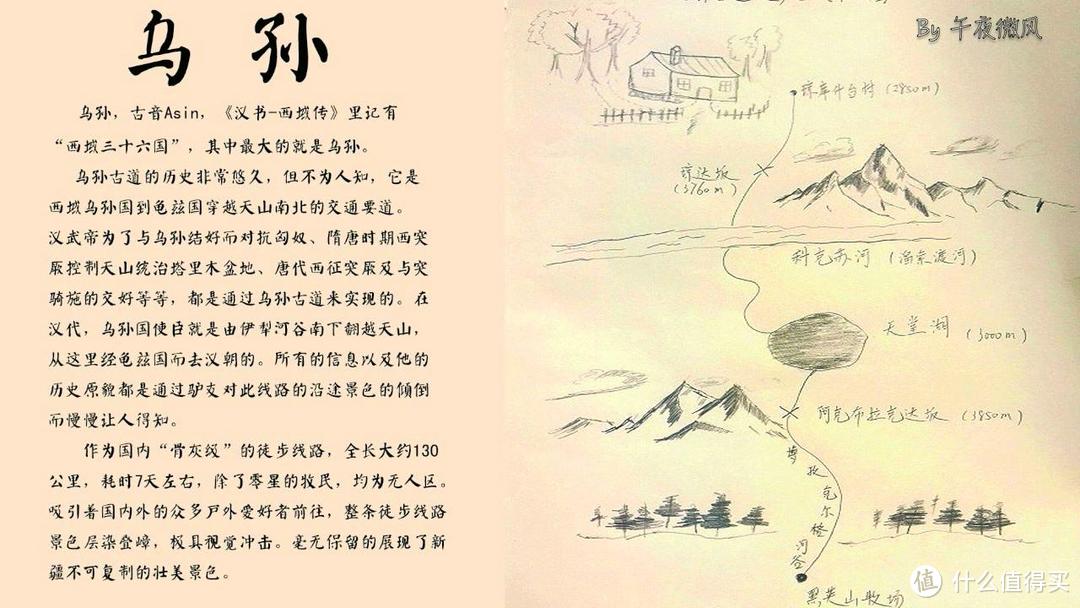 乌孙
乌孙，古音Asin，《汉书-西域传》里记有
“西域三十六国”，其中最大的就是乌孙。
乌孙古道的历史非常悠久，但不为人知，它是
西域乌孙国到龟兹国穿越天山南北的交通要道。
汉武帝为了与乌孙结好而对抗匈奴、隋唐时期西突
厥控制天山统治塔里木盆地、唐代西征突厥及与突
骑施的交好等等，都是通过乌孙古道来实现的。在
汉代，乌孙国使臣就是由伊犁河谷南下翻越天山，
从这里经龟兹国而去汉朝的。所有的信息以及他的
历史原貌都是通过驴友对此线路的沿途景色的倾倒
而慢慢让人得知。
作为国内“骨灰级”的徒步线路，全长大约130
公里，耗时7天左右，除了零星的牧民，均为无人区。
吸引着国内外的众多户外爱好者前往，整条徒步线路
景色层染叠嶂，极具视觉冲击。毫无保留的展现了新
疆不可复制的壮美景色。
By 午夜微风
琼库什台村 (2850m)
琼达坂
(3760m)
科克苏河 (溜索渡河)
天堂湖 (3000m)
阿克布拉克达坂 (3850m)
博孜克尔格河谷
黑英山牧场
值 什么值得买